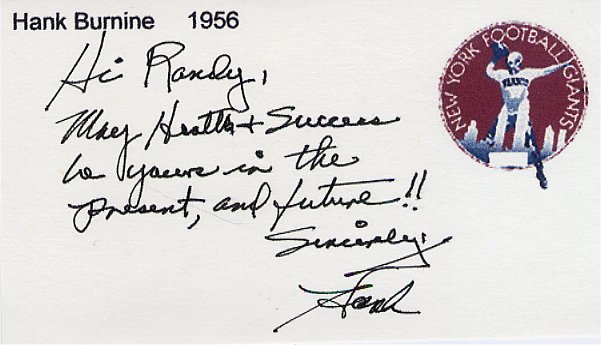 Hank Burnine 1956
NEW YORK FOOTBALL GIANTS
GIANTS
Hi Randy,
May Health + Success
be yours in the
present, and future!!
Sincerely,
Hank